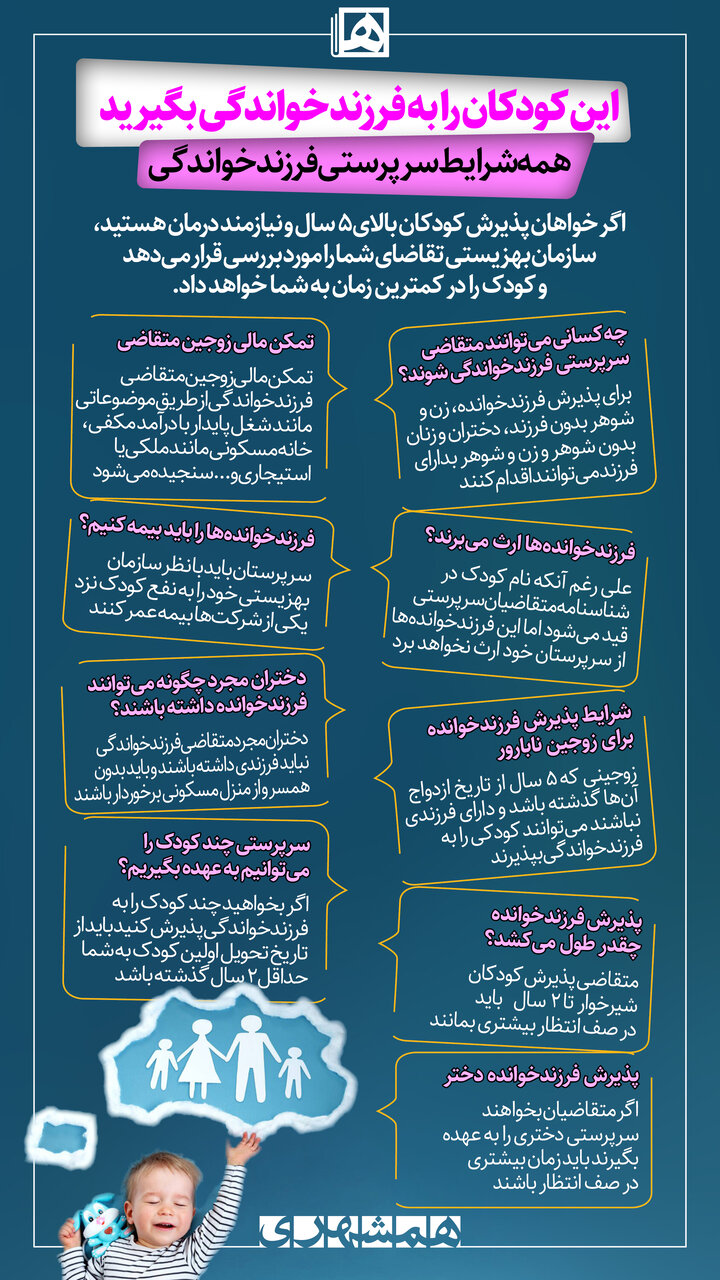 این کودکان را به فرزندخواندگی بگیرید
همه شرایط سرپرستی فرزندخواندگی
اگر خواهان پذیرش کودکان بالای ۵ سال و نیازمند درمان هستید،
سازمان بهزیستی تقاضای شما را مورد بررسی قرار می‌دهد
و کودک را در کمترین زمان به شما خواهد داد.
چه کسانی می‌توانند متقاضی
سرپرستی فرزندخواندگی شوند؟
برای پذیرش فرزندخوانده، زن و
شوهر بدون فرزند، دختران و زنان
بدون شوهر و زن و شوهر بدارای
فرزند می‌توانند اقدام کنند
فرزندخوانده‌ها ارث می‌برند؟
علی رغم آنکه نام کودک در
شناسنامه متقاضیان سرپرستی
قید می‌شود اما این فرزندخوانده‌ها
از سرپرستان خود ارث نخواهد برد
شرایط پذیرش فرزندخوانده
برای زوجین نابارور
زوجینی که ۵ سال از تاریخ ازدواج
آن‌ها گذشته باشد و دارای فرزندی
نباشند می‌توانند کودکی را به
فرزندخواندگی بپذیرند
پذیرش فرزندخوانده
چقدر طول می‌کشد؟
متقاضی پذیرش کودکان
شیرخوار تا ۲ سال باید
در صف انتظار بیشتری بمانند
پذیرش فرزندخوانده دختر
اگر متقاضیان بخواهند
سرپرستی دختری را به عهده
بگیرند باید زمان بیشتری
در صف انتظار باشند
تمکن مالی زوجین متقاضی
تمکن مالی زوجین متقاضی
فرزندخواندگی از طریق موضوعاتی
مانند شغل پایدار با درآمد مکفی،
خانه مسکونی مانند ملکی یا
استیجاری و... سنجیده می‌شود
فرزندخوانده‌ها را باید بیمه کنیم؟
سرپرستان باید با نظر سازمان
بهزیستی خود را به نفع کودک نزد
یکی از شرکت‌ها بیمه عمر کنند
دختران مجرد چگونه می‌توانند
فرزندخوانده داشته باشند؟
دختران مجرد متقاضی فرزندخواندگی
نباید فرزندی داشته باشند و باید بدون
همسر و از منزل مسکونی برخوردار باشند
سرپرستی چند کودک را
می‌توانیم به عهده بگیریم؟
اگر بخواهید چند کودک را به
فرزندخواندگی پذیرش کنید باید از
تاریخ تحویل اولین کودک به شما
حداقل ۲ سال گذشته باشد
همشهری